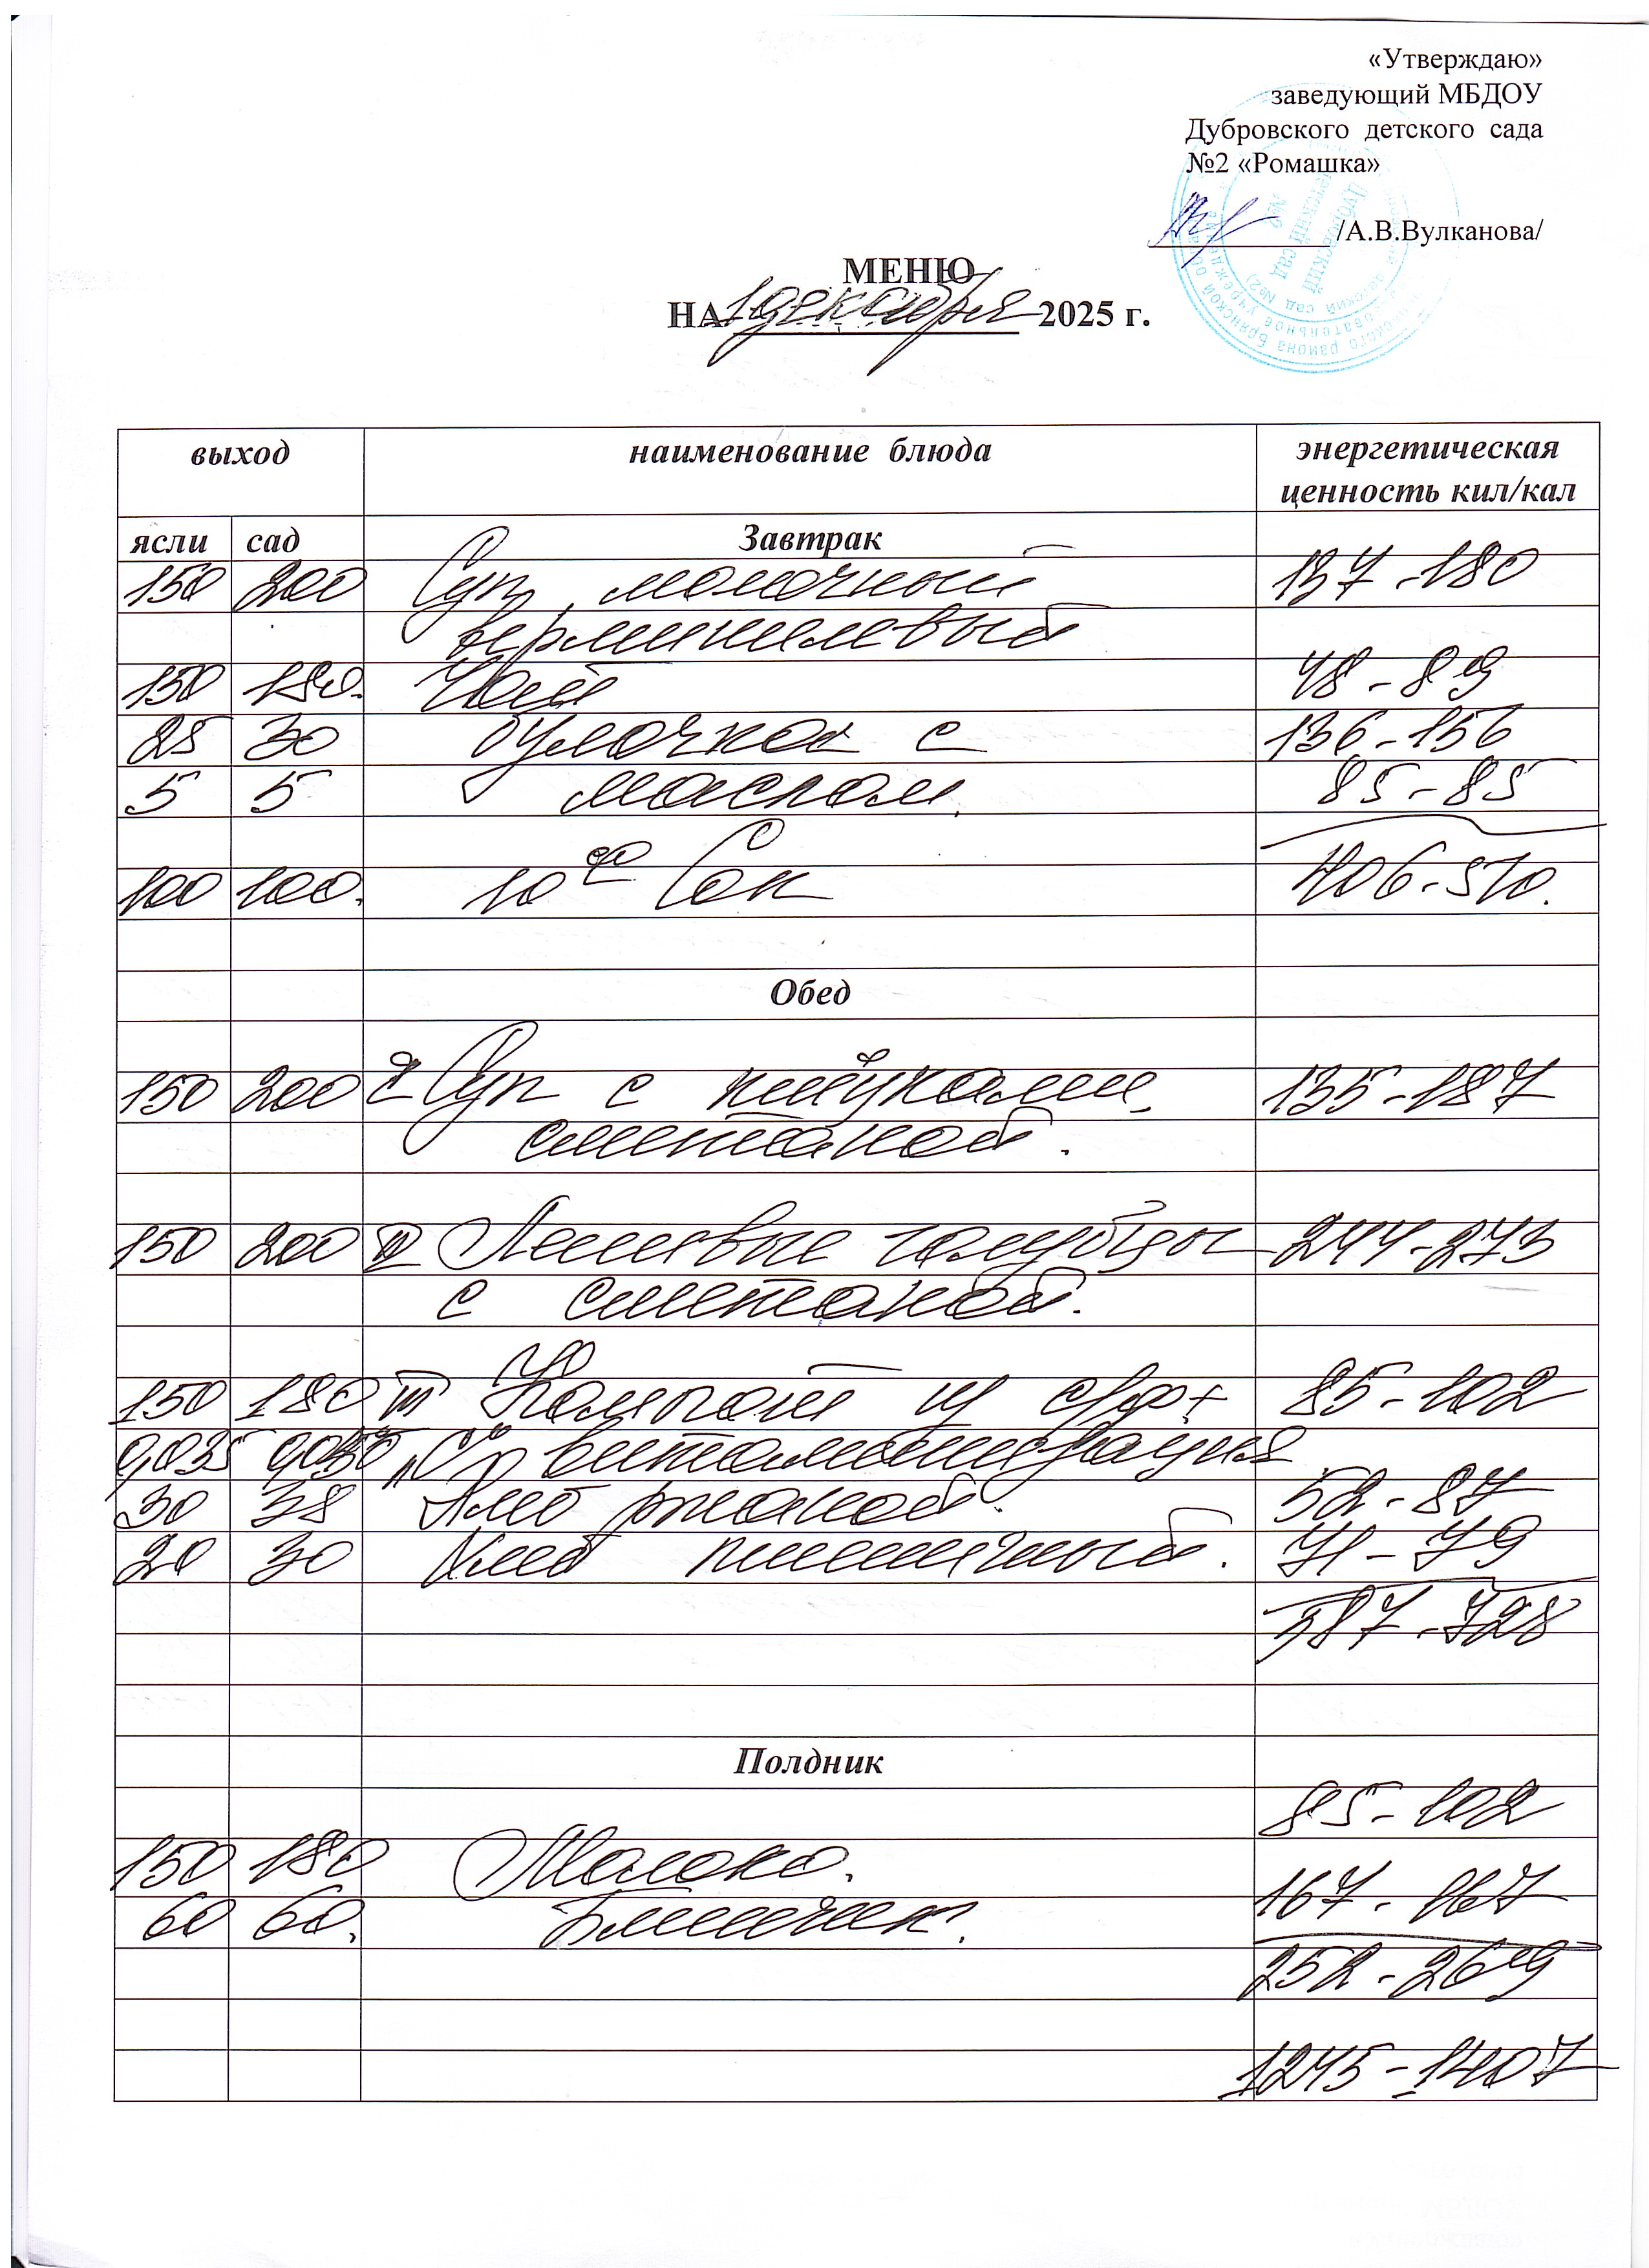 «Утверждаю»
заведующий МБДОУ
Дубровского детского сада
№2 «Ромашка»
/А.В.Вулканова/
МЕНЮ
НА 1 декабря 2025 г.
выход наименование блюда энергетическая ценность кил/кал
ясли сад Завтрак
150 200 Суп молочный 137-180
вермишелевый
150 180. Чай 48-89
25 30 булочка с 136-156
5 5 маслом. 85-85
406-510.
100 100. 10 00 Сок
Обед
150 200 I Суп с клёцками, 135-187
сметаной.
150 200 II Ленивые голубцы 244-273
с сметаной.
150 180 III Компот из с/ф + 85-102
0,035 0,050 "С" витаминизация
30 38 Хлеб ржаной. 52-87
20 30 Хлеб пшеничный. 71-79
587-728
Полдник
85-102
150 180 Молоко.
60 60. Блинчик. 167-167
252-269
1245-1407